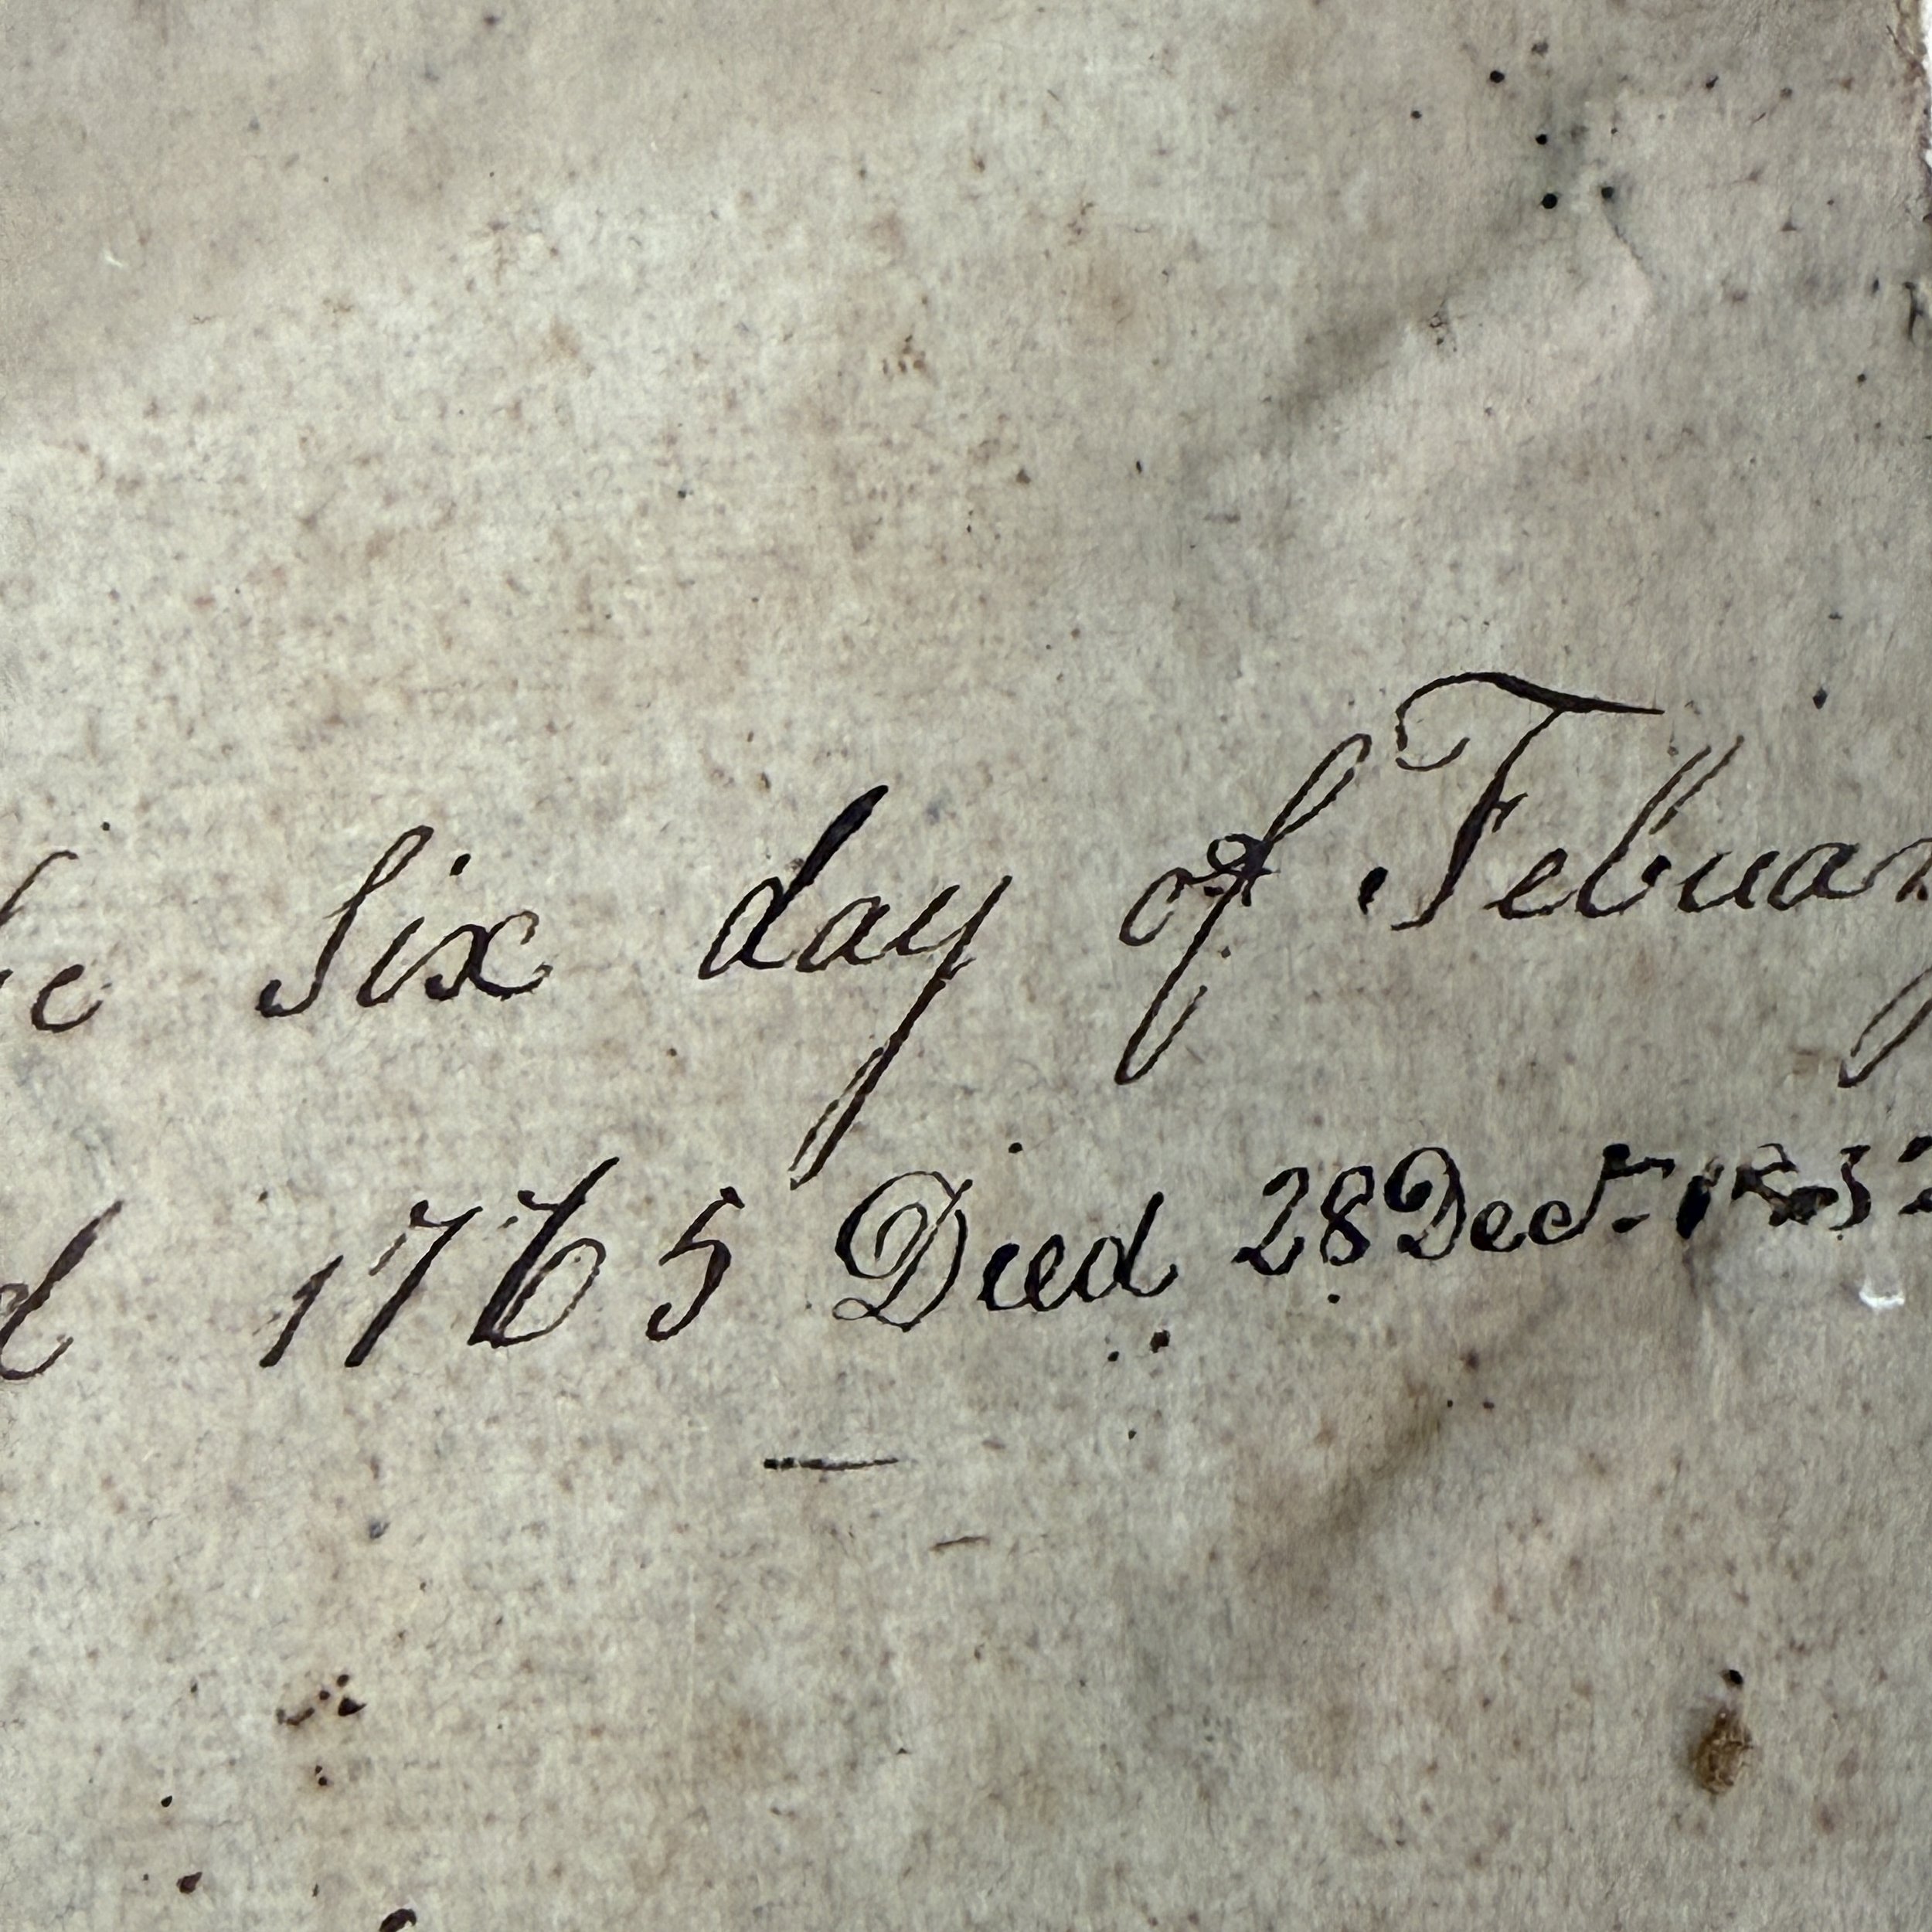 he Six day of Febuary
d 1765 Died 28 Decr